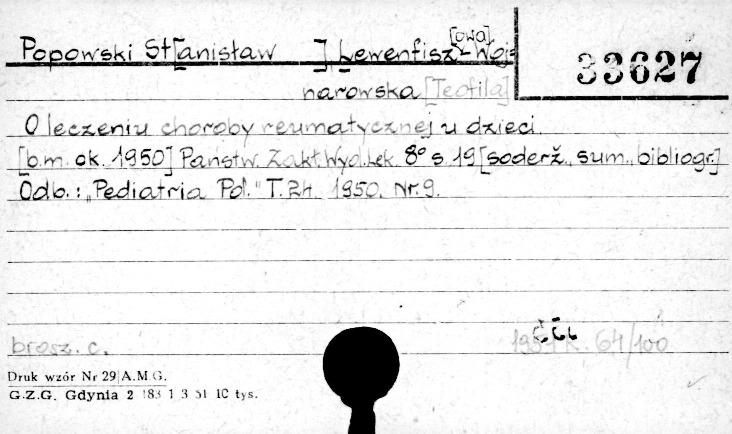 [owa]
Popowski St[anisław ] Lewenfisz-Woj=
33627
narowska [Teofila]
O leczeniu choroby reumatycznej u dzieci.
[b.m. ok. 1950] Państw. Zakł. Wyd. Lek. 8° s. 19 [soderž., sum., bibliogr.]
Odb.: "Pediatria Pol." T. 24. 1950. Nr. 9.
brosz. c.
K. 64/100
Druk wzór Nr 29 A.M.G.
G.Z.G. Gdynia 2 183 1 3 51 10 tys.